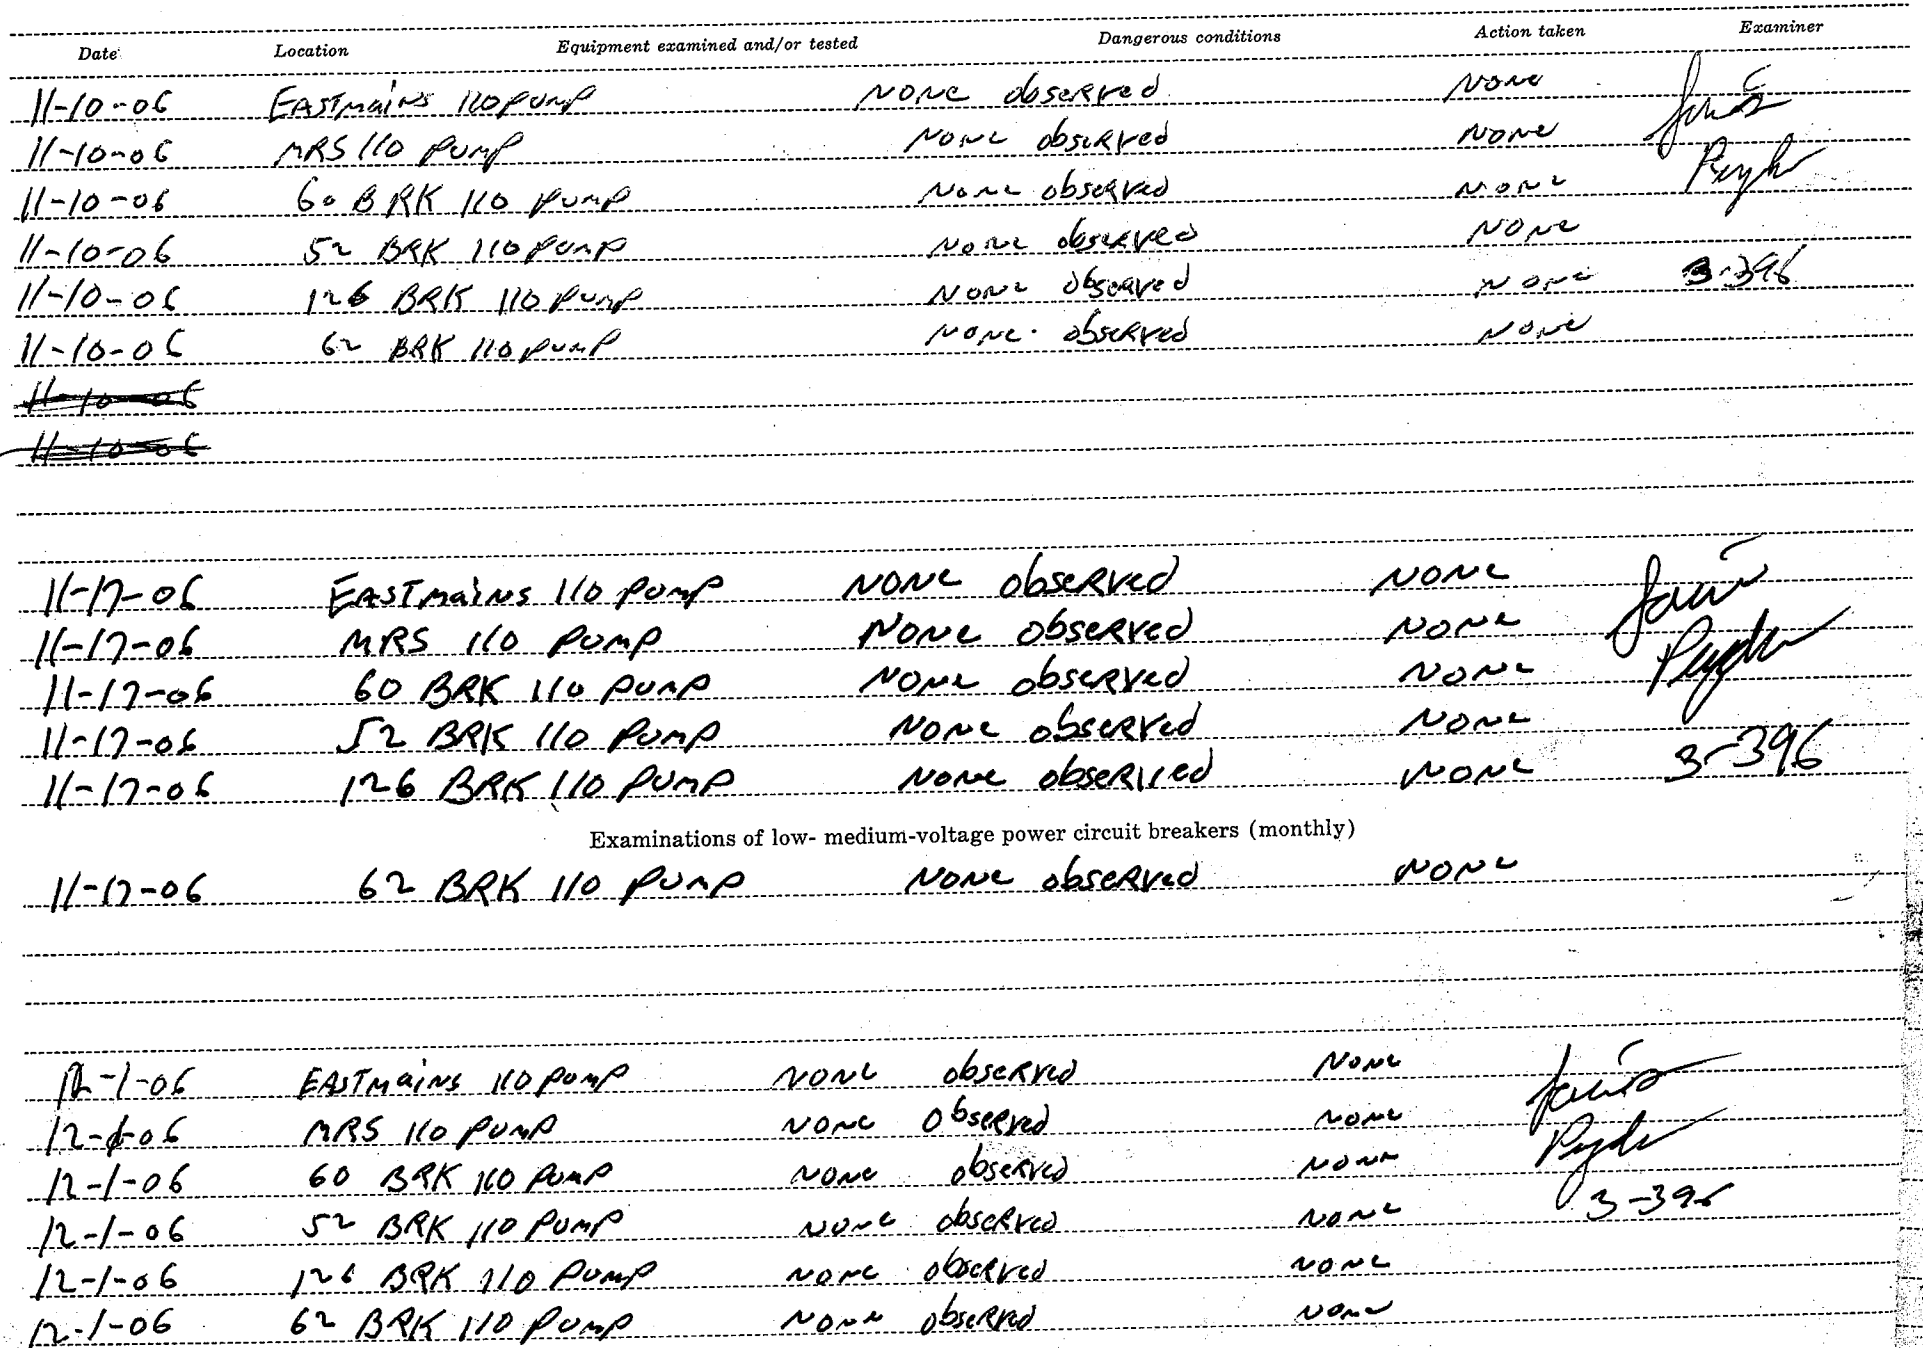 Date Location Equipment examined and/or tested Dangerous conditions Action taken Examiner
11-10-06 EASTmains 110 pump NONE observed NONE
11-10-06 MRS 110 pump NONE observed NONE
11-10-06 60 BRK 110 pump NONE observed NONE
11-10-06 52 BRK 110 pump NONE observed NONE
11-10-06 126 BRK 110 pump NONE observed NONE 3-396
11-10-06 62 BRK 110 pump NONE observed NONE
11-10-06
11-10-06
11-17-06 EASTmains 110 pump NONE observed NONE
11-17-06 MRS 110 pump NONE observed NONE
11-17-06 60 BRK 110 pump NONE observed NONE
11-17-06 52 BRK 110 pump NONE observed NONE
11-17-06 126 BRK 110 pump NONE observed NONE 3-396
Examinations of low- medium-voltage power circuit breakers (monthly)
11-17-06 62 BRK 110 pump NONE observed NONE
12-1-06 EASTmains 110 pump NONE observed NONE
12-1-06 MRS 110 pump NONE observed NONE
12-1-06 60 BRK 110 pump NONE observed NONE
12-1-06 52 BRK 110 pump NONE observed NONE 3-396
12-1-06 126 BRK 110 pump NONE observed NONE
12-1-06 62 BRK 110 pump NONE observed NONE